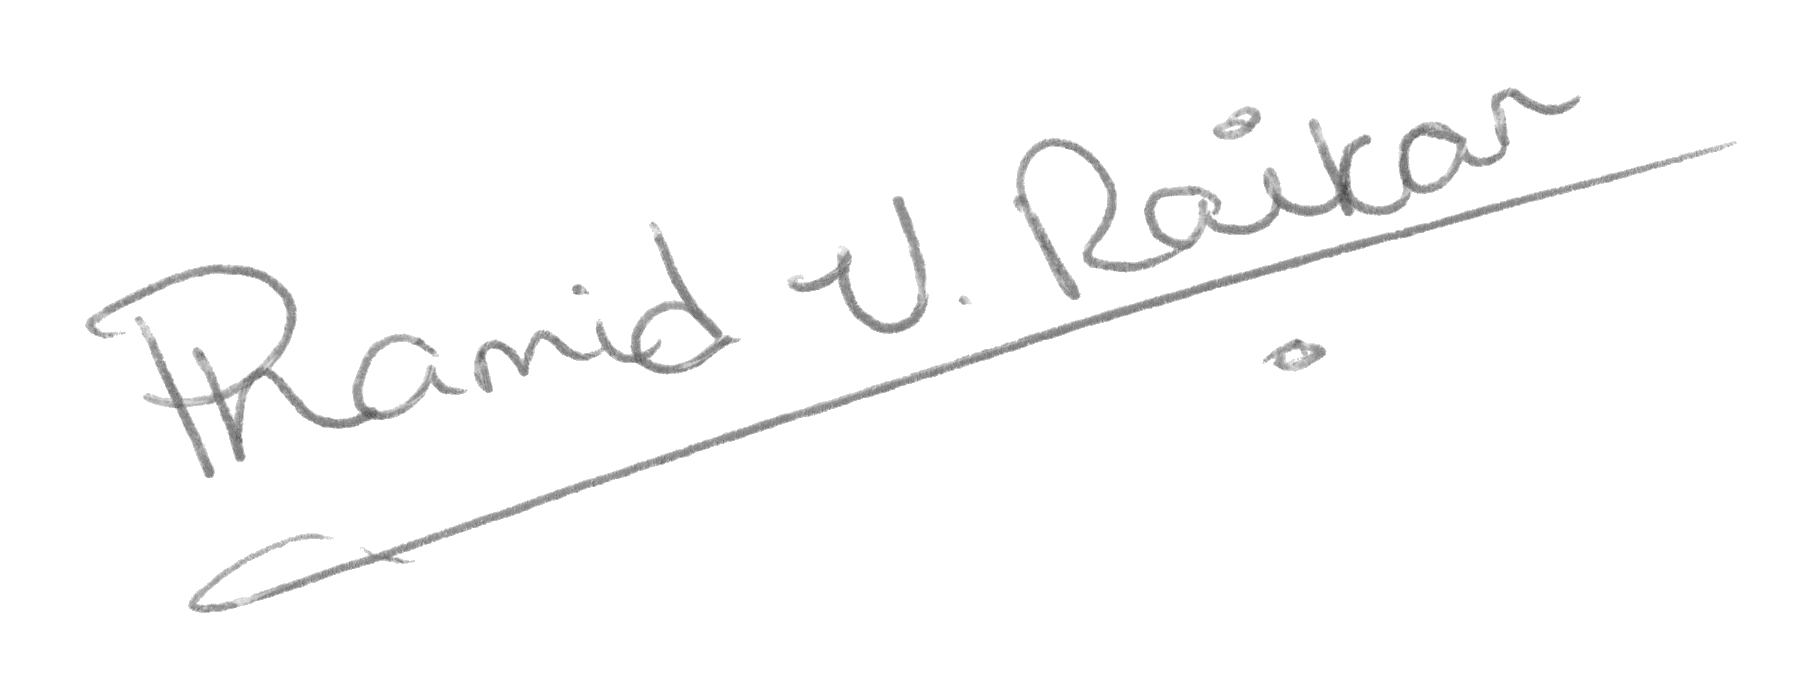 Pramid V. Raikar